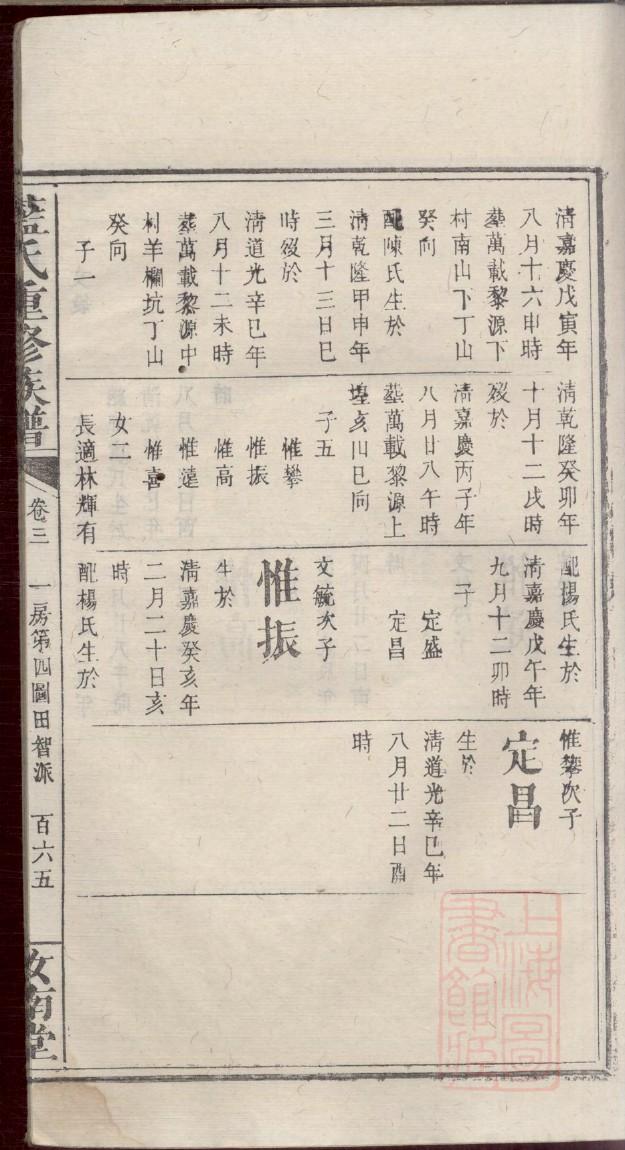 清嘉慶戊寅年
八月十六申時
塟萬載黎源下
村南山下丁山
癸向
配陳氏生於
清乾隆甲申年
三月十三日巳
時歿於
清道光辛巳年
八月十二未時
塟萬載黎源中
村羊欄坑丁山
癸向
子一
清乾隆癸卯年
十月十二戌時
歿於
清嘉慶丙子年
八月廿八午時
塟萬載黎源上
埕亥山巳向
子五
惟攀
惟振
惟高
惟達
惟喜
女二
長適林輝有
配楊氏生於
清嘉慶戊午年
九月十二卯時
子二
定盛
定昌
文毓次子
惟振
生於
清嘉慶癸亥年
二月二十日亥
時
配楊氏生於
惟攀次子
定昌
生於
清道光辛巳年
八月廿二日酉
時
藍氏重修族譜
卷三
一房第四圖田智派
百六五
汝南堂
上海圖
書館藏